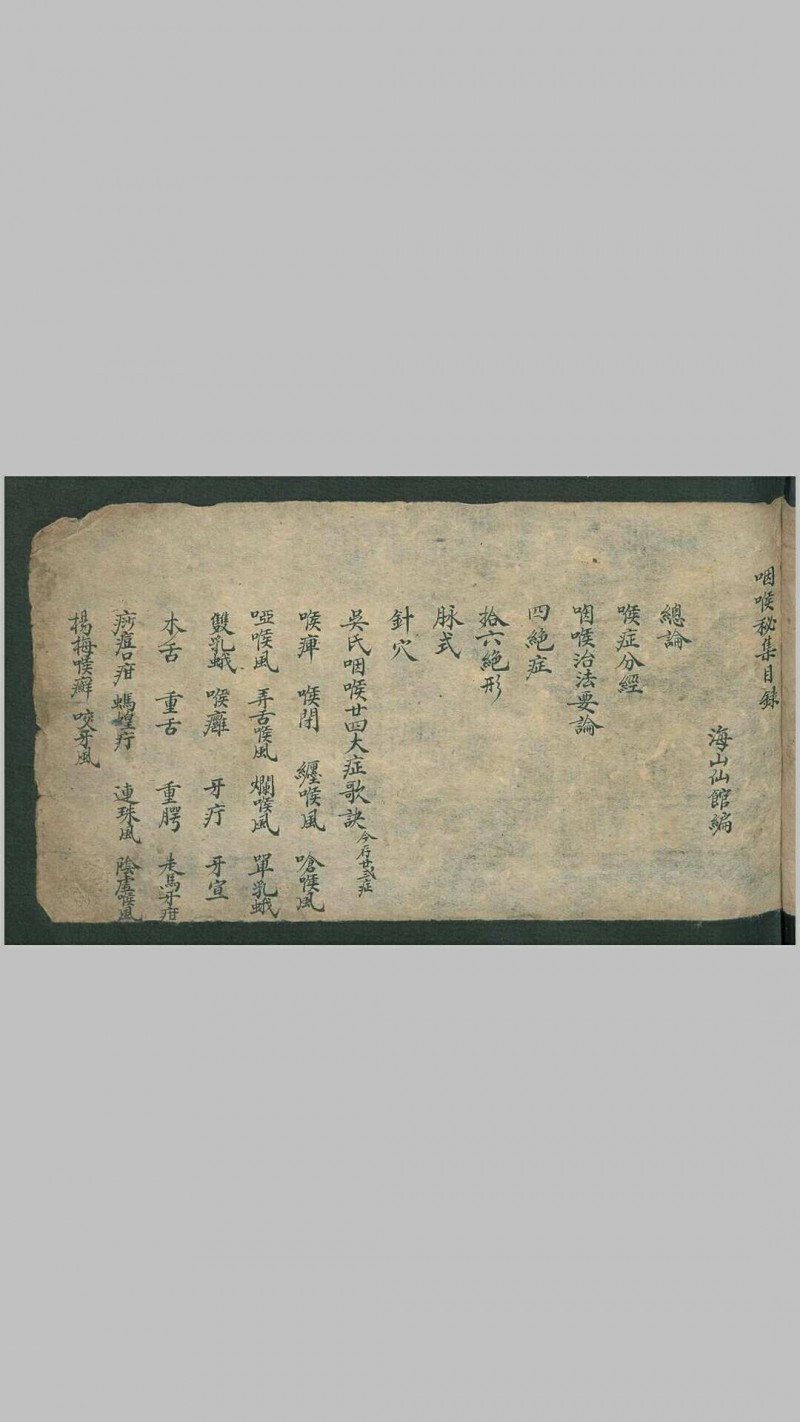 咽喉秘集目錄
海山仙館編
總論
喉症分經
咽喉治法要論
四絕症
拾六絕形
脉式
針穴
吳氏咽喉廿四大症歌訣 今存廿弍症
喉痺 喉閉 纒喉風 嗆喉風
啞喉風 弄舌喉風 爛喉風 單乳蛾
雙乳蛾 喉癰 牙疔 牙宣
木舌 重舌 重腭 走馬牙疳
痧痘口疳 螞蝗疔 連珠風 陰虛喉風
楊梅喉癬 咬牙風